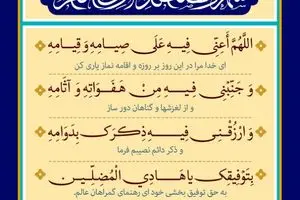 اللَّهُمَّ أَعِنِّي فِيهِ عَلَى صِيَامِهِ وَ قِيَامِهِ
ای خدا مرا در این روز بر روزه و اقامه نماز یاری کن
وَ جَنِّبْنِي فِيهِ مِنْ هَفَوَاتِهِ وَ آثَامِهِ
و از لغزشها و گناهان دور ساز
وَ ارْزُقْنِي فِيهِ ذِكْرَكَ بِدَوَامِهِ
و ذکر دائم نصیبم فرما
بِتَوْفِيقِكَ يَا هَادِيَ الْمُضِلِّينَ
به حق توفیق بخشی خود ای رهنمای گمراهان عالم.